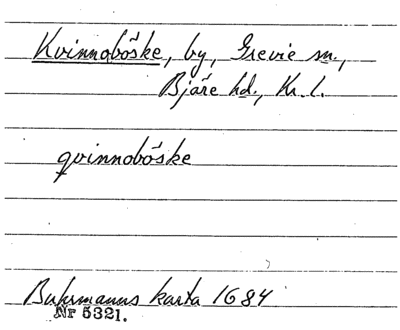 Kvinnoböske, by, Grevie sn.,
Bjäre hd., Kr. l.
qvinnoböske
Buhrmanns karta 1684
Nr 5321.